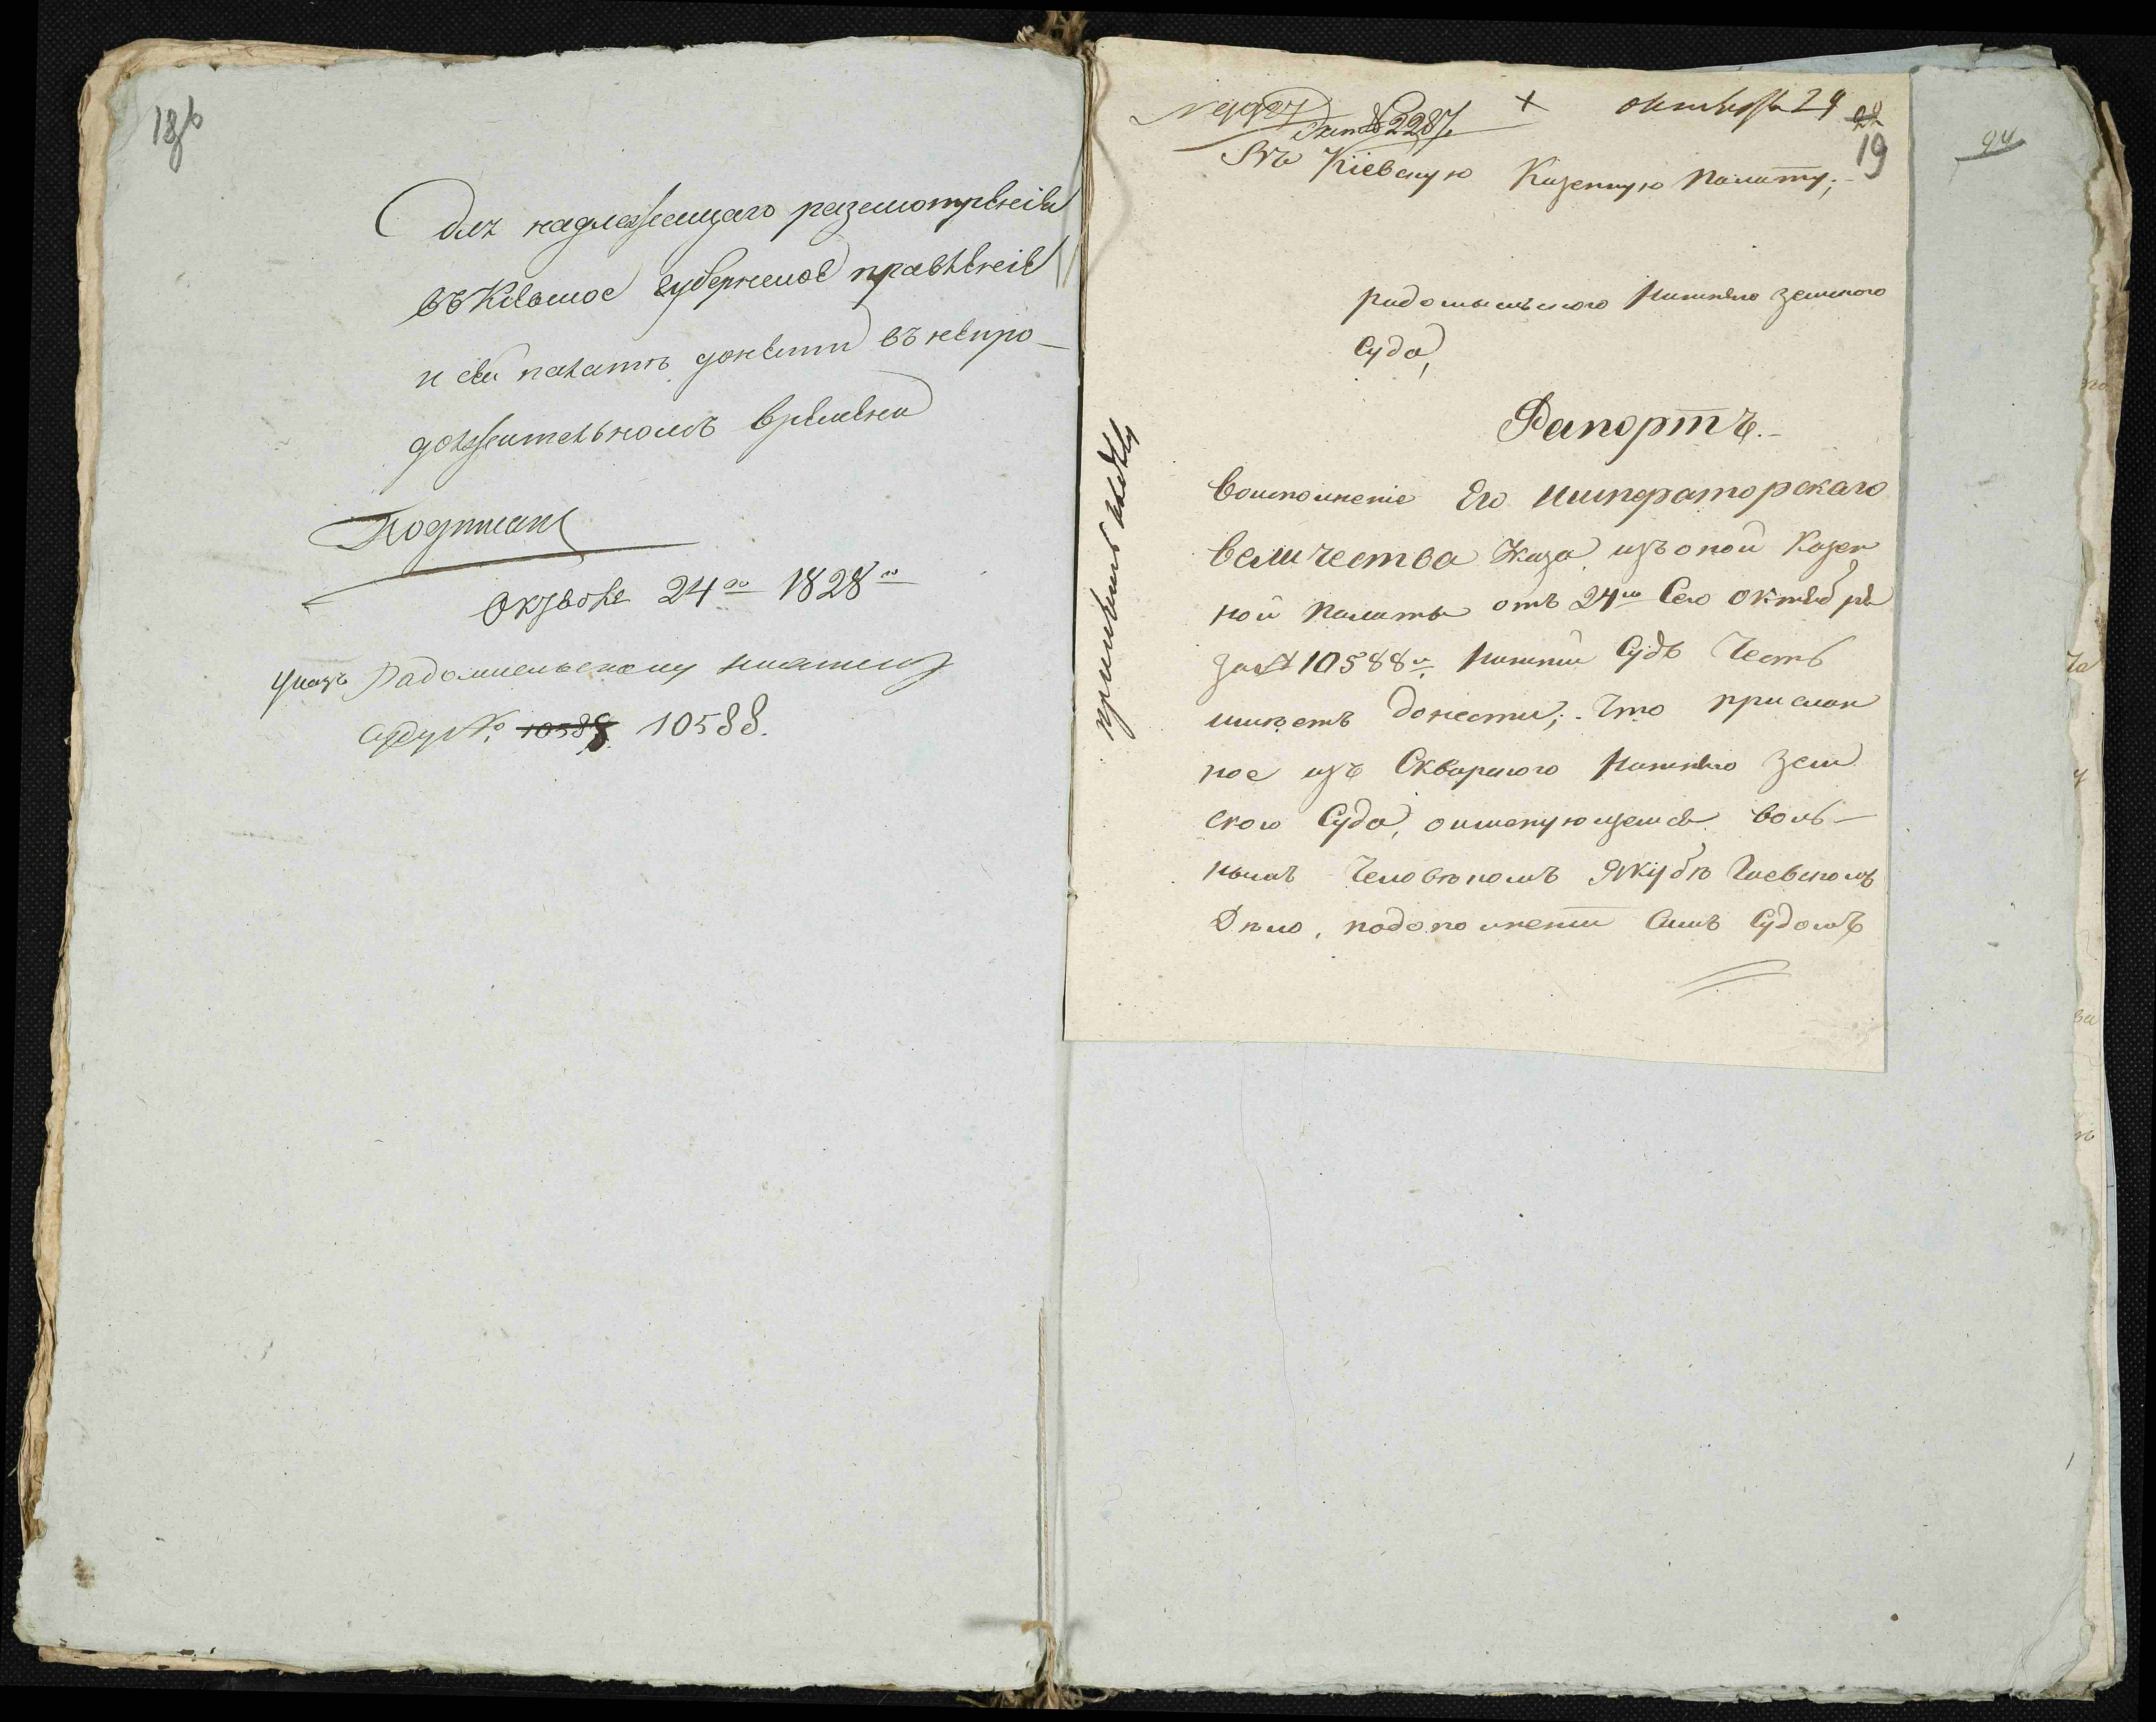 18б
для надлежащаго разсмотренія
въ Кіевское губернское правленіе
и сей палатѣ донести въ непро-
должительномъ времени
Подписанъ
Октября 24го 1828го
указъ Радомысльскому нижнему
суду № 10588 10588.
октября 29
№ 2287
22
19
94
Въ Кіевскую Казенную Палату;
Радомысльского Нижнего земского
Суда,
Рапортъ.-
Воисполненіе Его Императорскаго
Величества Указа изъ оной Казен
ной Палаты отъ 24го Сего Октября
за № 10588м, Нижній Судъ Честь
имѣетъ донести; что прислан
ное изъ Сквирского Нижнего Зем
ского Суда, о именующемся воль-
нымъ Человѣкомъ Якубѣ Гаевскомъ
Дѣло, по дополненіи Симъ Судомъ